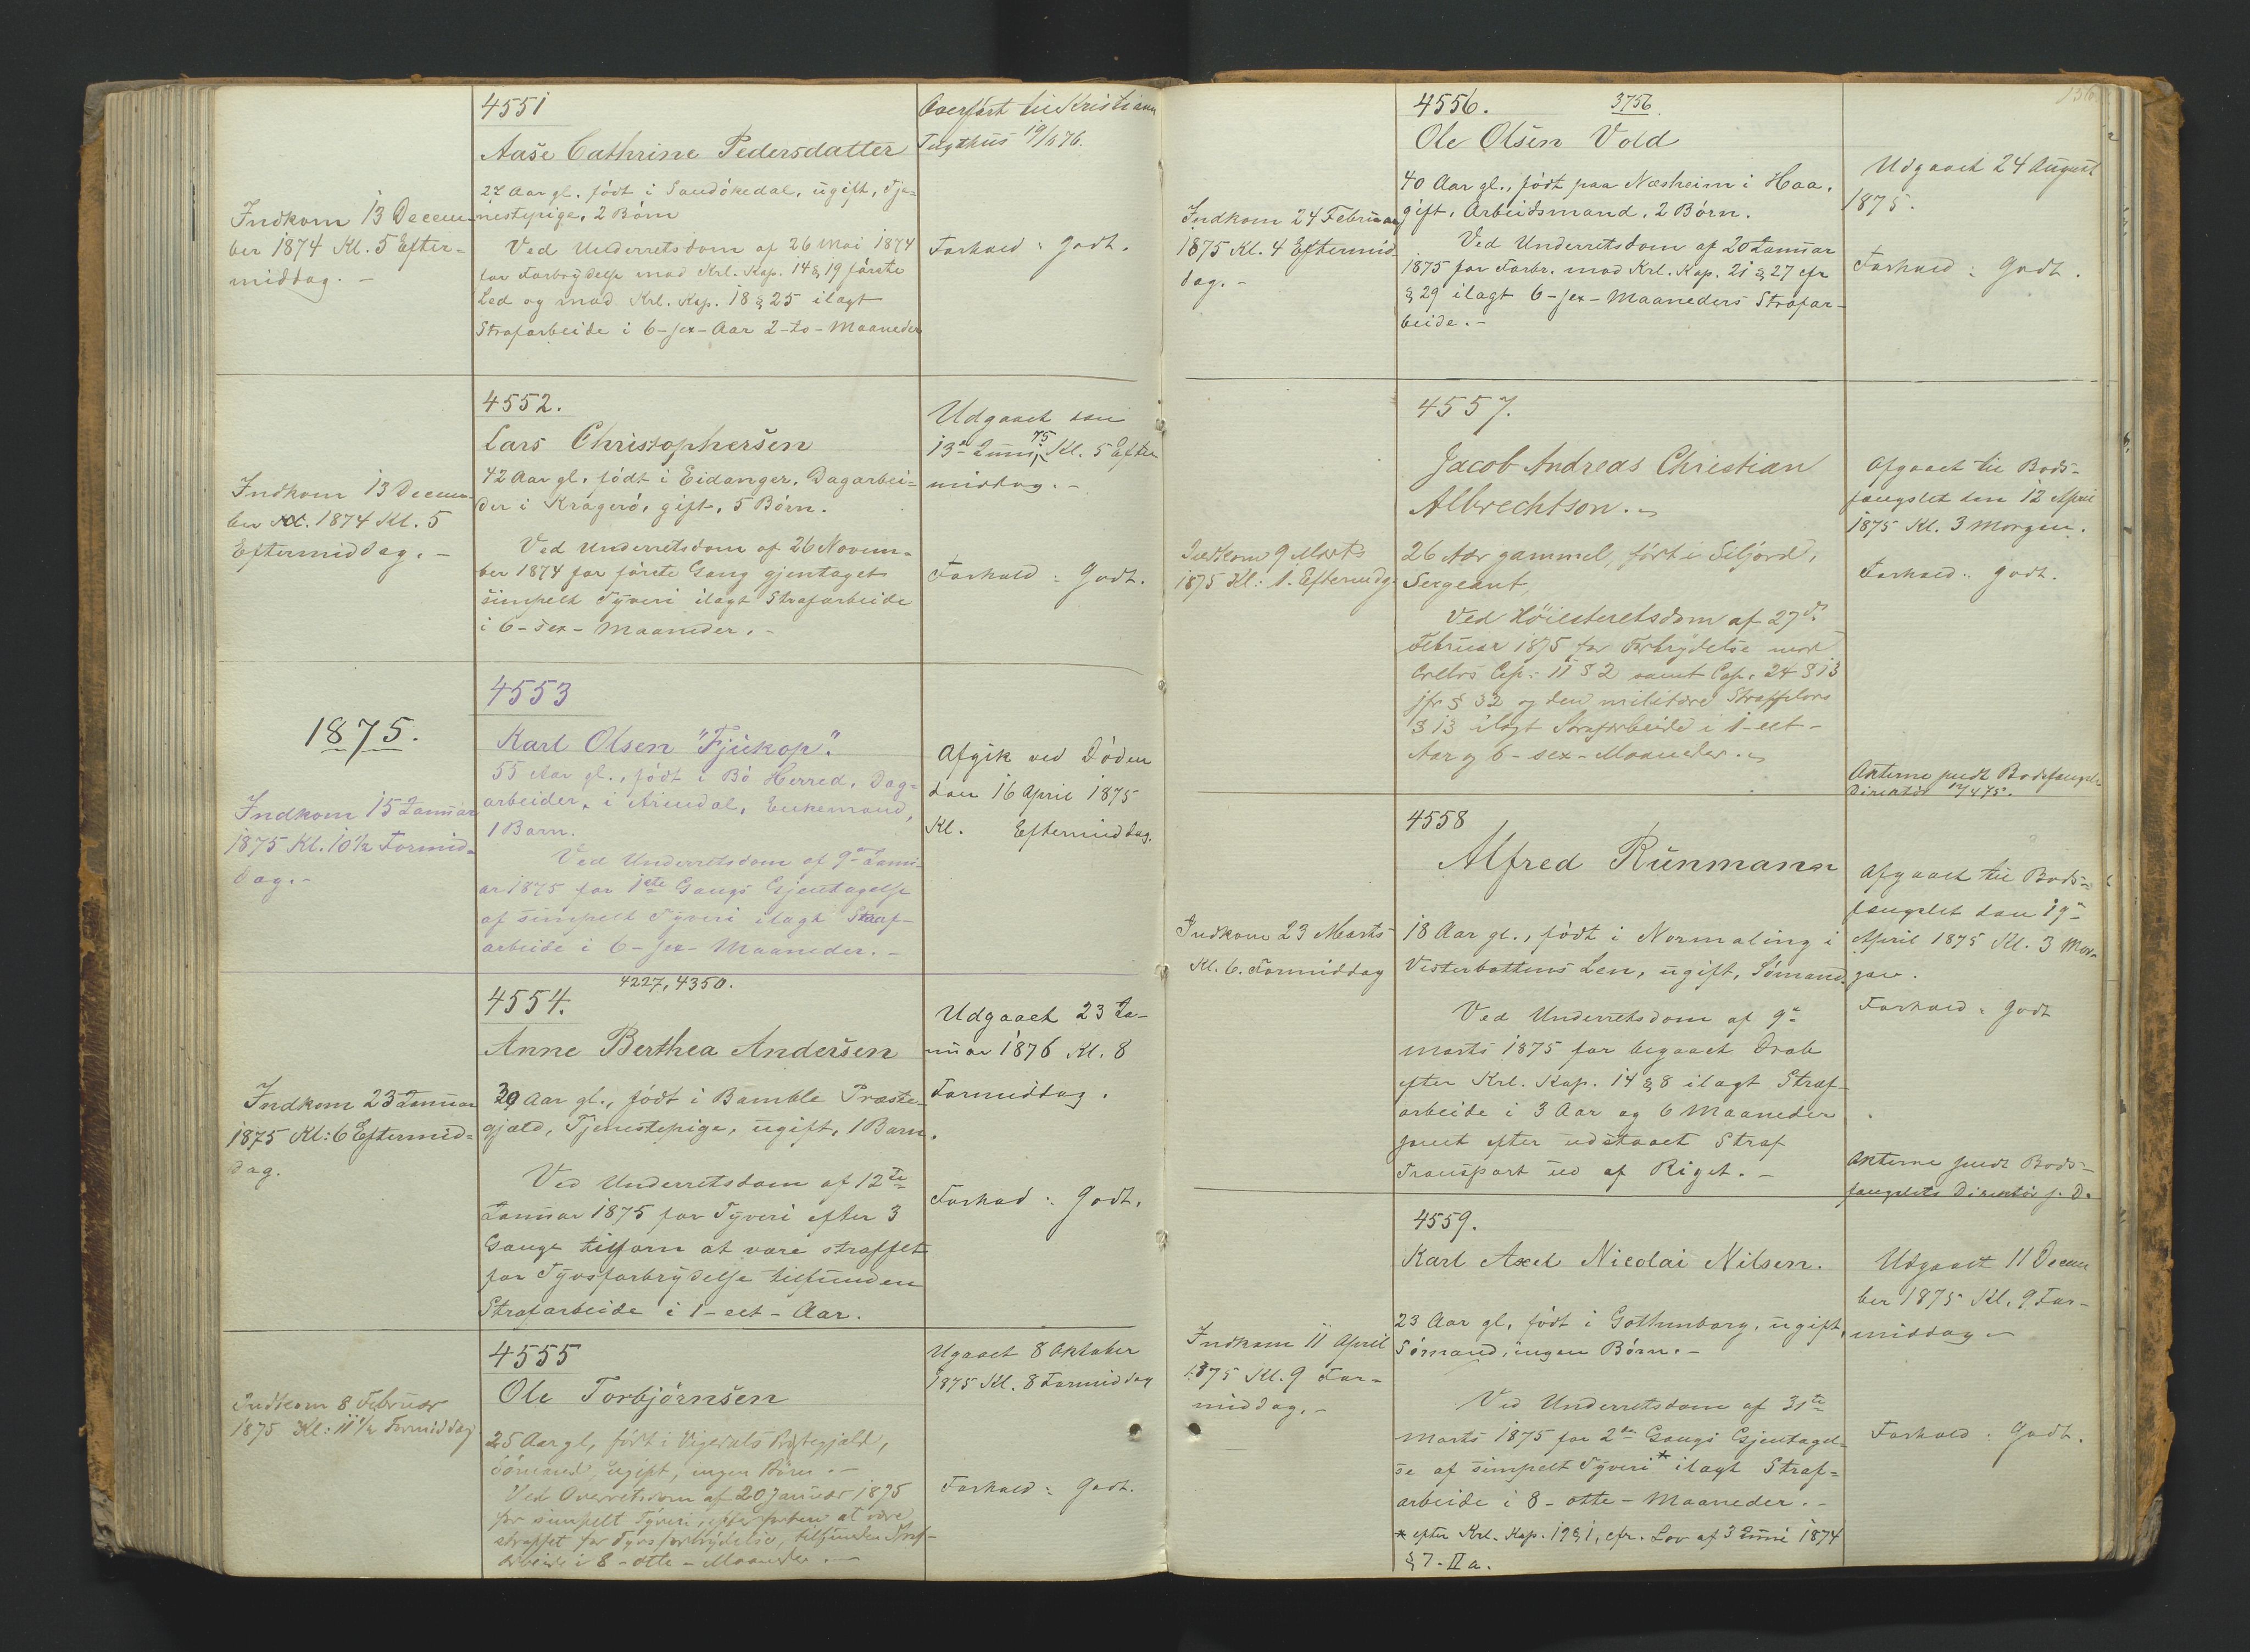 4551
Aase Cathrine Pedersdatter
27 Aar gl. født i Sandökedal, ugift, Tje-
nestepige, 2 Børn
Ved Underretsdom af 26 Mai 1874
for Forbrydelse mod Krl. Kap. 14 § 19 første
Led og mod Krl. Kap. 18 § 25 ilagt
Strafarbeide i 6 - sex - Aar 2 - to - Maaneder
Indkom 13 Decem-
ber 1874 Kl. 5 Efter-
middag. -
Overført til Kristiania
Tugthus 76.
Forhold: Godt.
4552.
Lars Christophersen
42 Aar gl. født i Eidanger, Dagarbei-
der i Kragerö, gift, 5 Børn.
Ved Underretsdom af 26 Novem-
ber 1874 for første Gang gjentaget
simpelt Tyveri ilagt Strafarbeide
i 6 - sex - Maaneder. -
Indkom 13 Decem-
ber 1874 Kl. 5
Eftermiddag. -
Udgaaet den
13de Juni 75 Kl. 5 Efter
middag. -
Forhold: Godt.
1875.
4553
Karl Olsen "Fjukop".
55 Aar gl., født i Bö Herred, Dag-
arbeider, i Arendal, Enkemand,
1 Barn.
Ved Underretsdom af 9de Janu-
ar 1875 for 1ste Gangs Gjentagelse
af simpelt Tyveri ilagt Straf-
arbeide i 6 - sex - Maaneder. -
Indkom 15 Januar
1875 Kl. 10 1/2 Formid-
dag. -
Afgik ved Döden
den 16 April 1875
Kl. Eftermiddag.
4227, 4350.
4554.
Anne Berthea Andersen
39 Aar gl., født i Bamble Præste-
gjæld, Tjenestepige, ugift, 1 Barn.
Ved Underretsdom af 12te
Januar 1875 for Tyveri efter 3
Gange tilforn at være straffet
for Tyvsforbrydelse tilfunden
Strafarbeide i 1 - eet - Aar.
Indkom 23 Januar
1875 Kl: 6 Eftermid-
dag.
Udgaaet 23 Ja-
nuar 1876 Kl. 8
Formiddag.
Forhod: Godt.
4555
Ole Torbjörnsen
25 Aar gl, født i Vigedals Prstegjæld,
Sömand, ugift, ingen Børn. -
Ved Overretsdom af 20 Januar 1875
for simpelt Tyveri, efter forhen at være
straffet for Tyvsforbrydelse, tilfunden Straf-
arbeide i 8 - otte - Maaneder. -
Indkom 8 Februar
1875 Kl: 11 1/2 Formiddag
Ugaaet 8 Oktober
1875 Kl. 8 Formiddag
Forhold: Godt.
136
4556. 3756.
Ole Olsen Vold
40 Aar gl., født paa Næsheim i Haa,
gift, Arbeidsmand, 2 Børn.
Ved Underretsdom af 20 Januar
1875 for Forbr. mod Krl. Kap. 21 § 27 cfr
§ 29 ilagt 6 - sex - Maaneders Strafar-
beide. -
Indkom 24 Februar
1875 Kl. 4 Eftermid-
dag. -
Udgaaet 24 August
1875.
Forhold: Godt.
4557.
Jacob Andreas Christian
Albrechtson.
26 Aar gammel, født i Siljord,
Sergeant,
Ved Höiesteretsdom af 27de
Februar 1875 for Forbrydelse mod
Crllvs Cap: 11 § 2 samt Cap. 24 § 13
jfr § 32 og den militære Straffelovs
§ 13 ilagt Strafarbeide i 1 - eet -
Aar og 6 - sex - Maaneder.
Indkom 9 Marts
1875 Kl: 1. Eftermdg.
Afgaaet til Bods-
fængslet den 12 April
1875 Kl. 3 Morgen.
Forhold: Godt.
Akterne sendt Bodsfængslets
Direktör 12/4 75.
4558
Alfred Runmann
18 Aar gl., født i Normaling i
Vesterbottens Len, ugift, Sömand.
Ved Underretsdom af 9de
Marts 1875 for begaaet Drab
efter Krl. Kap. 14 § 8 ilagt Straf-
arbeide i 3 Aar og 6 Maaneder
samt efter udstaaet Straf
Transport ud af Riget. -
Indkom 23 Marts
Kl. 6. Formiddag
Afgaaet til Bods-
fængslet den 19de
April 1875 Kl. 3 Mor-
gen.
Forhold: Godt
Akterne sendt Bods-
fængslets Direktör s. D.
4559.
Karl Axel Nicolai Nilsen.
23 Aar gl, født i Gothenborg, ugift,
Sömand, ingen Börn. -
Ved Underretsdom af 31te
Marts 1875 for 2den Gangs Gjentagel-
se af simpelt Tyveri * ilagt Straf-
arbeide i 8 - otte - Maaneder. -
* efter Krl. Kap. 19 § 1, cfr. Lov af 3 Juni 1874
§ 7 - II a.
Indkom 11 April
1875 Kl. 9 For-
middag. -
Udgaaet 11 Decem
ber 1875 Kl. 9 For-
middag -
Forhold: Godt.